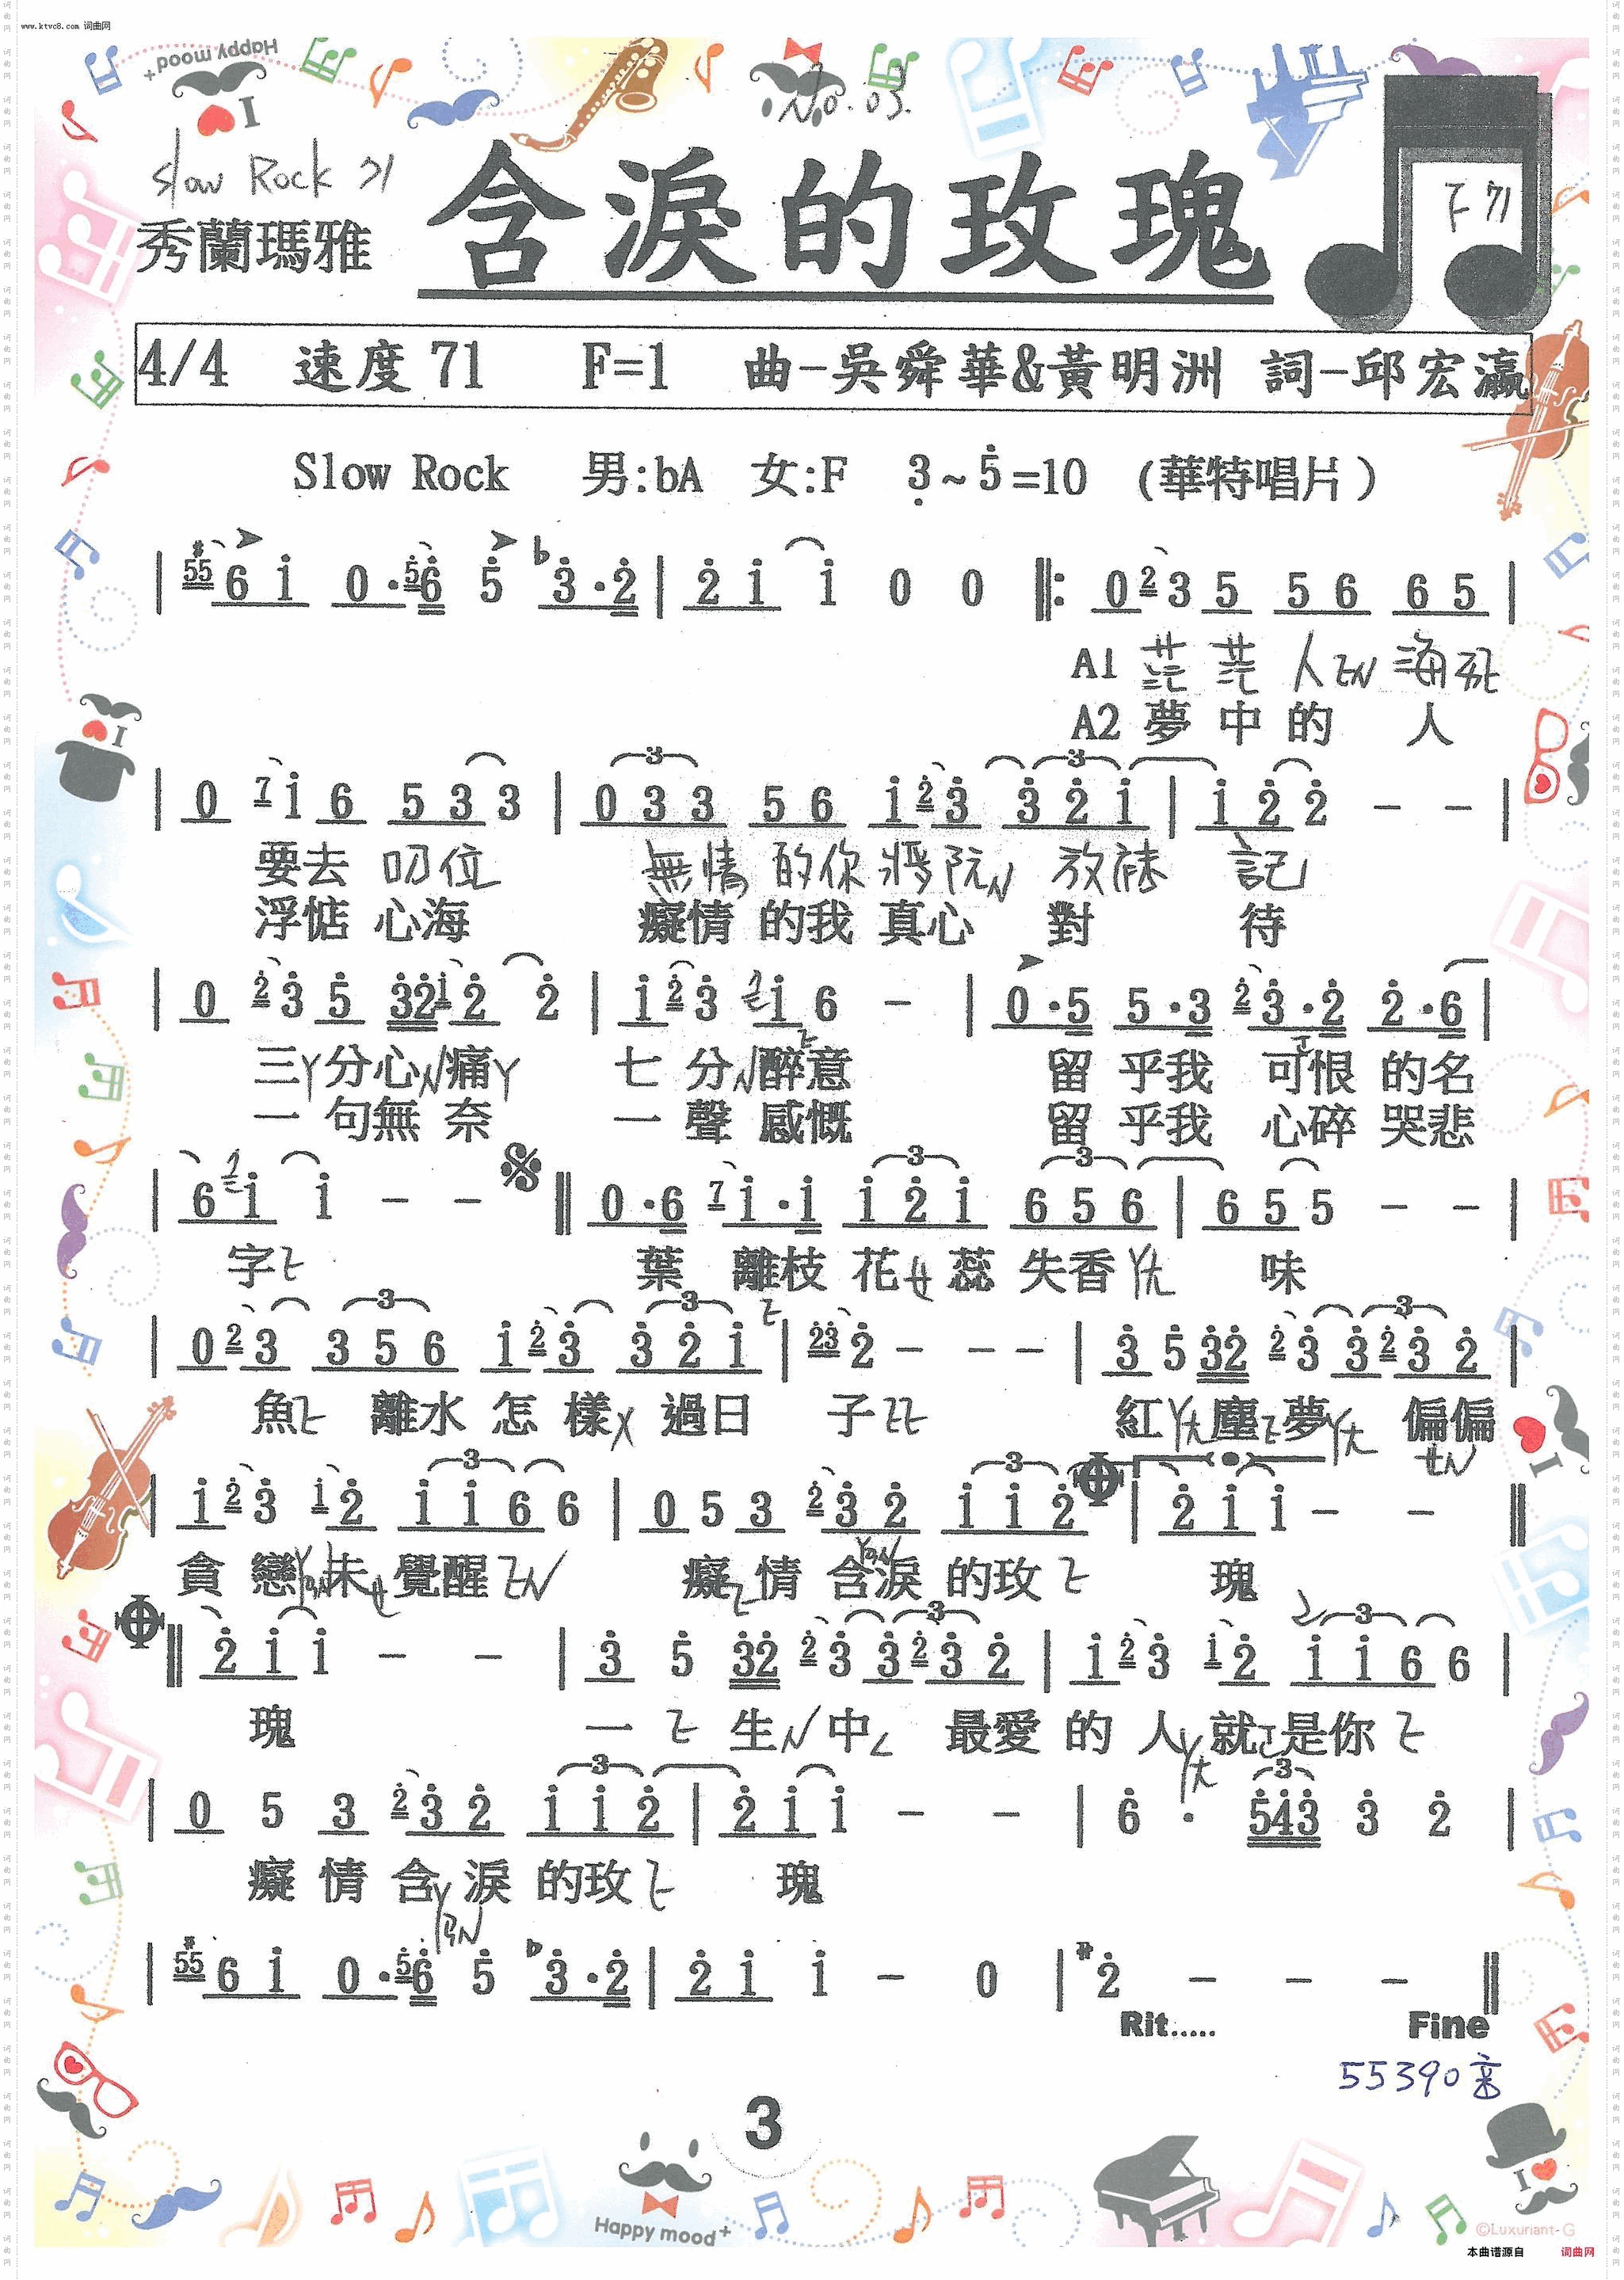 www.ktvc8.com 词曲网
Happy mood+
I
No.03.
Slow Rock 71
秀蘭瑪雅
含淚的玫瑰
F 71
4/4 速度 71 F=1 曲-吳舜華&黃明洲 詞-邱宏瀛
Slow Rock 男:bA 女:F 3~5=10 (華特唱片)
| #55 6 1 0·56 5 b3·2 | 2 1 1 0 0 ‖: 0 2 3 5 5 6 6 5 |
A1 茫 茫 人 海
A2 夢 中 的 人
| 0 7 1 6 5 3 3 | 0 3 3 5 6 1 2 3 3 2 1 | 1 2 2 - - |
要去 叨位 無情 的你 將阮 放袂 記
浮惦 心海 癡情 的我 真心 對 待
| 0 2 3 5 32 1 2 2 | 1 2 3 7 1 6 - | 0·5 5·3 2 3·2 2·6 |
三 分心 痛 七 分 醉意 留 乎我 可恨 的名
一 句無 奈 一 聲 感慨 留 乎我 心碎 哭悲
| 6 7 1 1 - - ‖ 0·6 7 1·1 1 2 1 6 5 6 | 6 5 5 - - |
字 葉 離枝 花 蕊 失香 味
| 0 2 3 3 5 6 1 2 3 3 2 1 | 23 2 - - - | 3 5 32 2 3 3 2 3 2 |
魚 離水 怎 樣 過日 子 紅 塵 夢 偏偏
| 1 2 3 1 2 1 1 6 6 | 0 5 3 2 3 2 1 1 2 | 2 1 1 - - ‖
貪 戀 未 覺醒 癡 情 含淚 的玫 瑰
‖ 2 1 1 - - | 3 5 32 2 3 3 2 3 2 | 1 2 3 1 2 1 1 6 6 |
瑰 一 生 中 最愛 的 人 就 是你
| 0 5 3 2 3 2 1 1 2 | 2 1 1 - - | 6 · 543 3 2 |
癡 情 含 淚 的玫 瑰
| #55 6 1 0·56 5 b3·2 | 2 1 1 - 0 | #2 - - - ‖
Rit..... Fine
55390 音
3
Happy mood+
I
©Luxuriant-G
本曲谱源自 词曲网